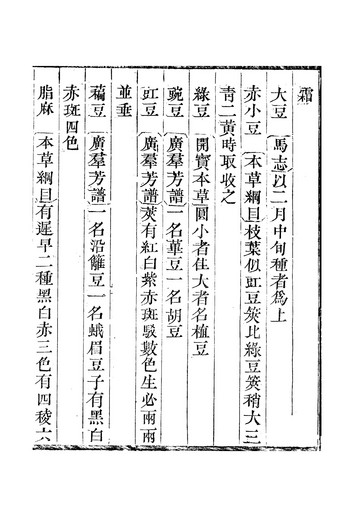 霜
大豆〔馬志〕以二月中旬種者爲上
赤小豆〔本草綱目〕枝葉似豇豆莢比綠豆莢稍大三
青二黃時取收之
綠豆〔開寶本草〕圓小者佳大者名植豆
豌豆〔廣羣芳譜〕一名蓽豆一名胡豆
豇豆〔廣羣芳譜〕莢有紅白紫赤斑駁數色生必兩兩
並垂
藊豆〔廣羣芳譜〕一名沿籬豆一名蛾眉豆子有黑白
赤斑四色
脂麻〔本草綱目〕有遲早二種黑白赤三色有四稜六